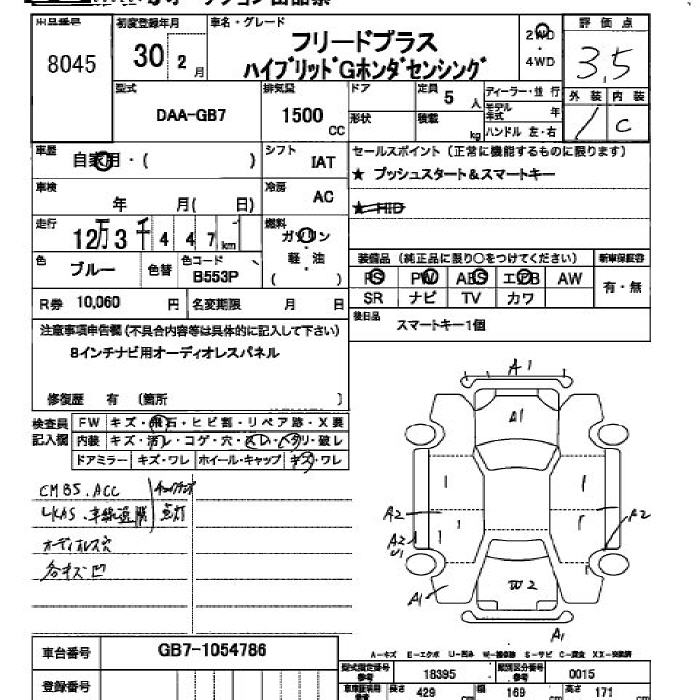 出品番号 初度登録年月 車名・グレード 評価点
8045 30 2月 フリードプラス 2WD・4WD 3,5
ハイブリッドGホンダセンシング
外装 内装
型式 排気量 ドア 定員 5人 ディーラー・並行
DAA-GB7 1500cc モデル年式 年 / C
形状 積載 kg ハンドル 左・右
車歴 自家用・( ) シフト IAT セールスポイント(正常に機能するものに限ります)
★ プッシュスタート&スマートキー
車検 年 月( 日) 冷房 AC
★ HID
走行 12万3千447km 燃料 ガソリン
軽・油
( )
色 ブルー 色替 色コード B553P
装備品(純正品に限り○をつけてください) 新車保証書
PS PW ABS エアB AW 有・無
SR ナビ TV カワ
R券 10,060 円 名変期限 月 日
後日品 スマートキー1個
注意事項申告欄(不具合内容等は具体的に記入して下さい)
8インチナビ用オーディオレスパネル
修復歴 有 〔箇所 〕
検査員記入欄
FW キズ・飛石・ヒビ割・リペア跡・X要
内装 キズ・汚レ・コゲ・穴・スレ・ヘタリ・破レ
ドアミラー キズ・ワレ ホイール・キャップ キズ・ワレ
CMBS.ACC
LKAS.車線逸脱 点灯
オーディオレス穴
各キズ凹
A1
A1
A2
A2
U1
A2
W2
A1
A1
A-キズ E-エクボ U-凹み W-補修跡 S-サビ C-腐食 XX-交換済
車台番号 GB7-1054786
型式指定番号 参考 18395 類別区分番号 参考 0015
登録番号 長さ 429 cm 幅 169 cm 高さ 171 cm